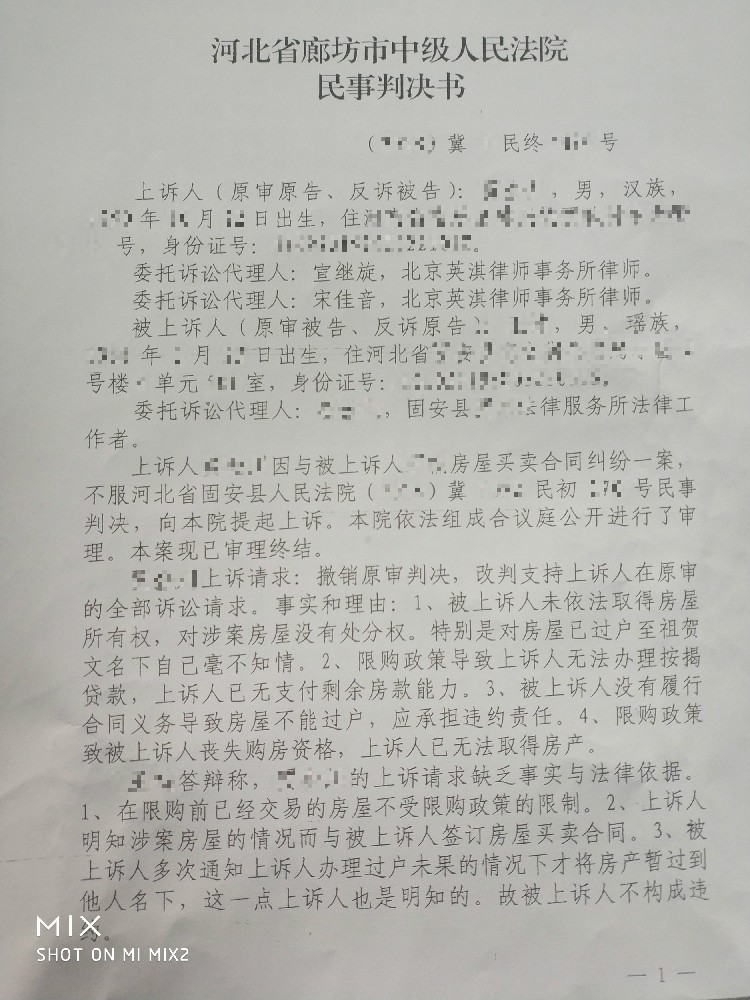 河北省廊坊市中级人民法院
民事判决书
（ ）冀 民终 号
上诉人（原审原告、反诉被告）： ，男，汉族，
年 月 日出生，住
号，身份证号： 。
委托诉讼代理人：宣继旋，北京英淇律师事务所律师。
委托诉讼代理人：宋佳音，北京英淇律师事务所律师。
被上诉人（原审被告、反诉原告）： ，男，瑶族，
年 月 日出生，住河北省
号楼 单元 室，身份证号：
委托诉讼代理人： ，固安县 法律服务所法律工
作者。
上诉人 因与被上诉人 房屋买卖合同纠纷一案，
不服河北省固安县人民法院（ ）冀 民初 号民事
判决，向本院提起上诉。本院依法组成合议庭公开进行了审
理。本案现已审理终结。
上诉请求：撤销原审判决，改判支持上诉人在原审
的全部诉讼请求。事实和理由：1、被上诉人未依法取得房屋
所有权，对涉案房屋没有处分权。特别是对房屋已过户至祖贺
文名下自己毫不知情。2、限购政策导致上诉人无法办理按揭
贷款，上诉人已无支付剩余房款能力。3、被上诉人没有履行
合同义务导致房屋不能过户，应承担违约责任。4、限购政策
致被上诉人丧失购房资格，上诉人已无法取得房产。
答辩称， 的上诉请求缺乏事实与法律依据。
1、在限购前已经交易的房屋不受限购政策的限制。2、上诉人
明知涉案房屋的情况而与被上诉人签订房屋买卖合同。3、被
上诉人多次通知上诉人办理过户未果的情况下才将房产暂过到
他人名下，这一点上诉人也是明知的。故被上诉人不构成违
。
MIX
SHOT ON MI MIX2
— 1 —